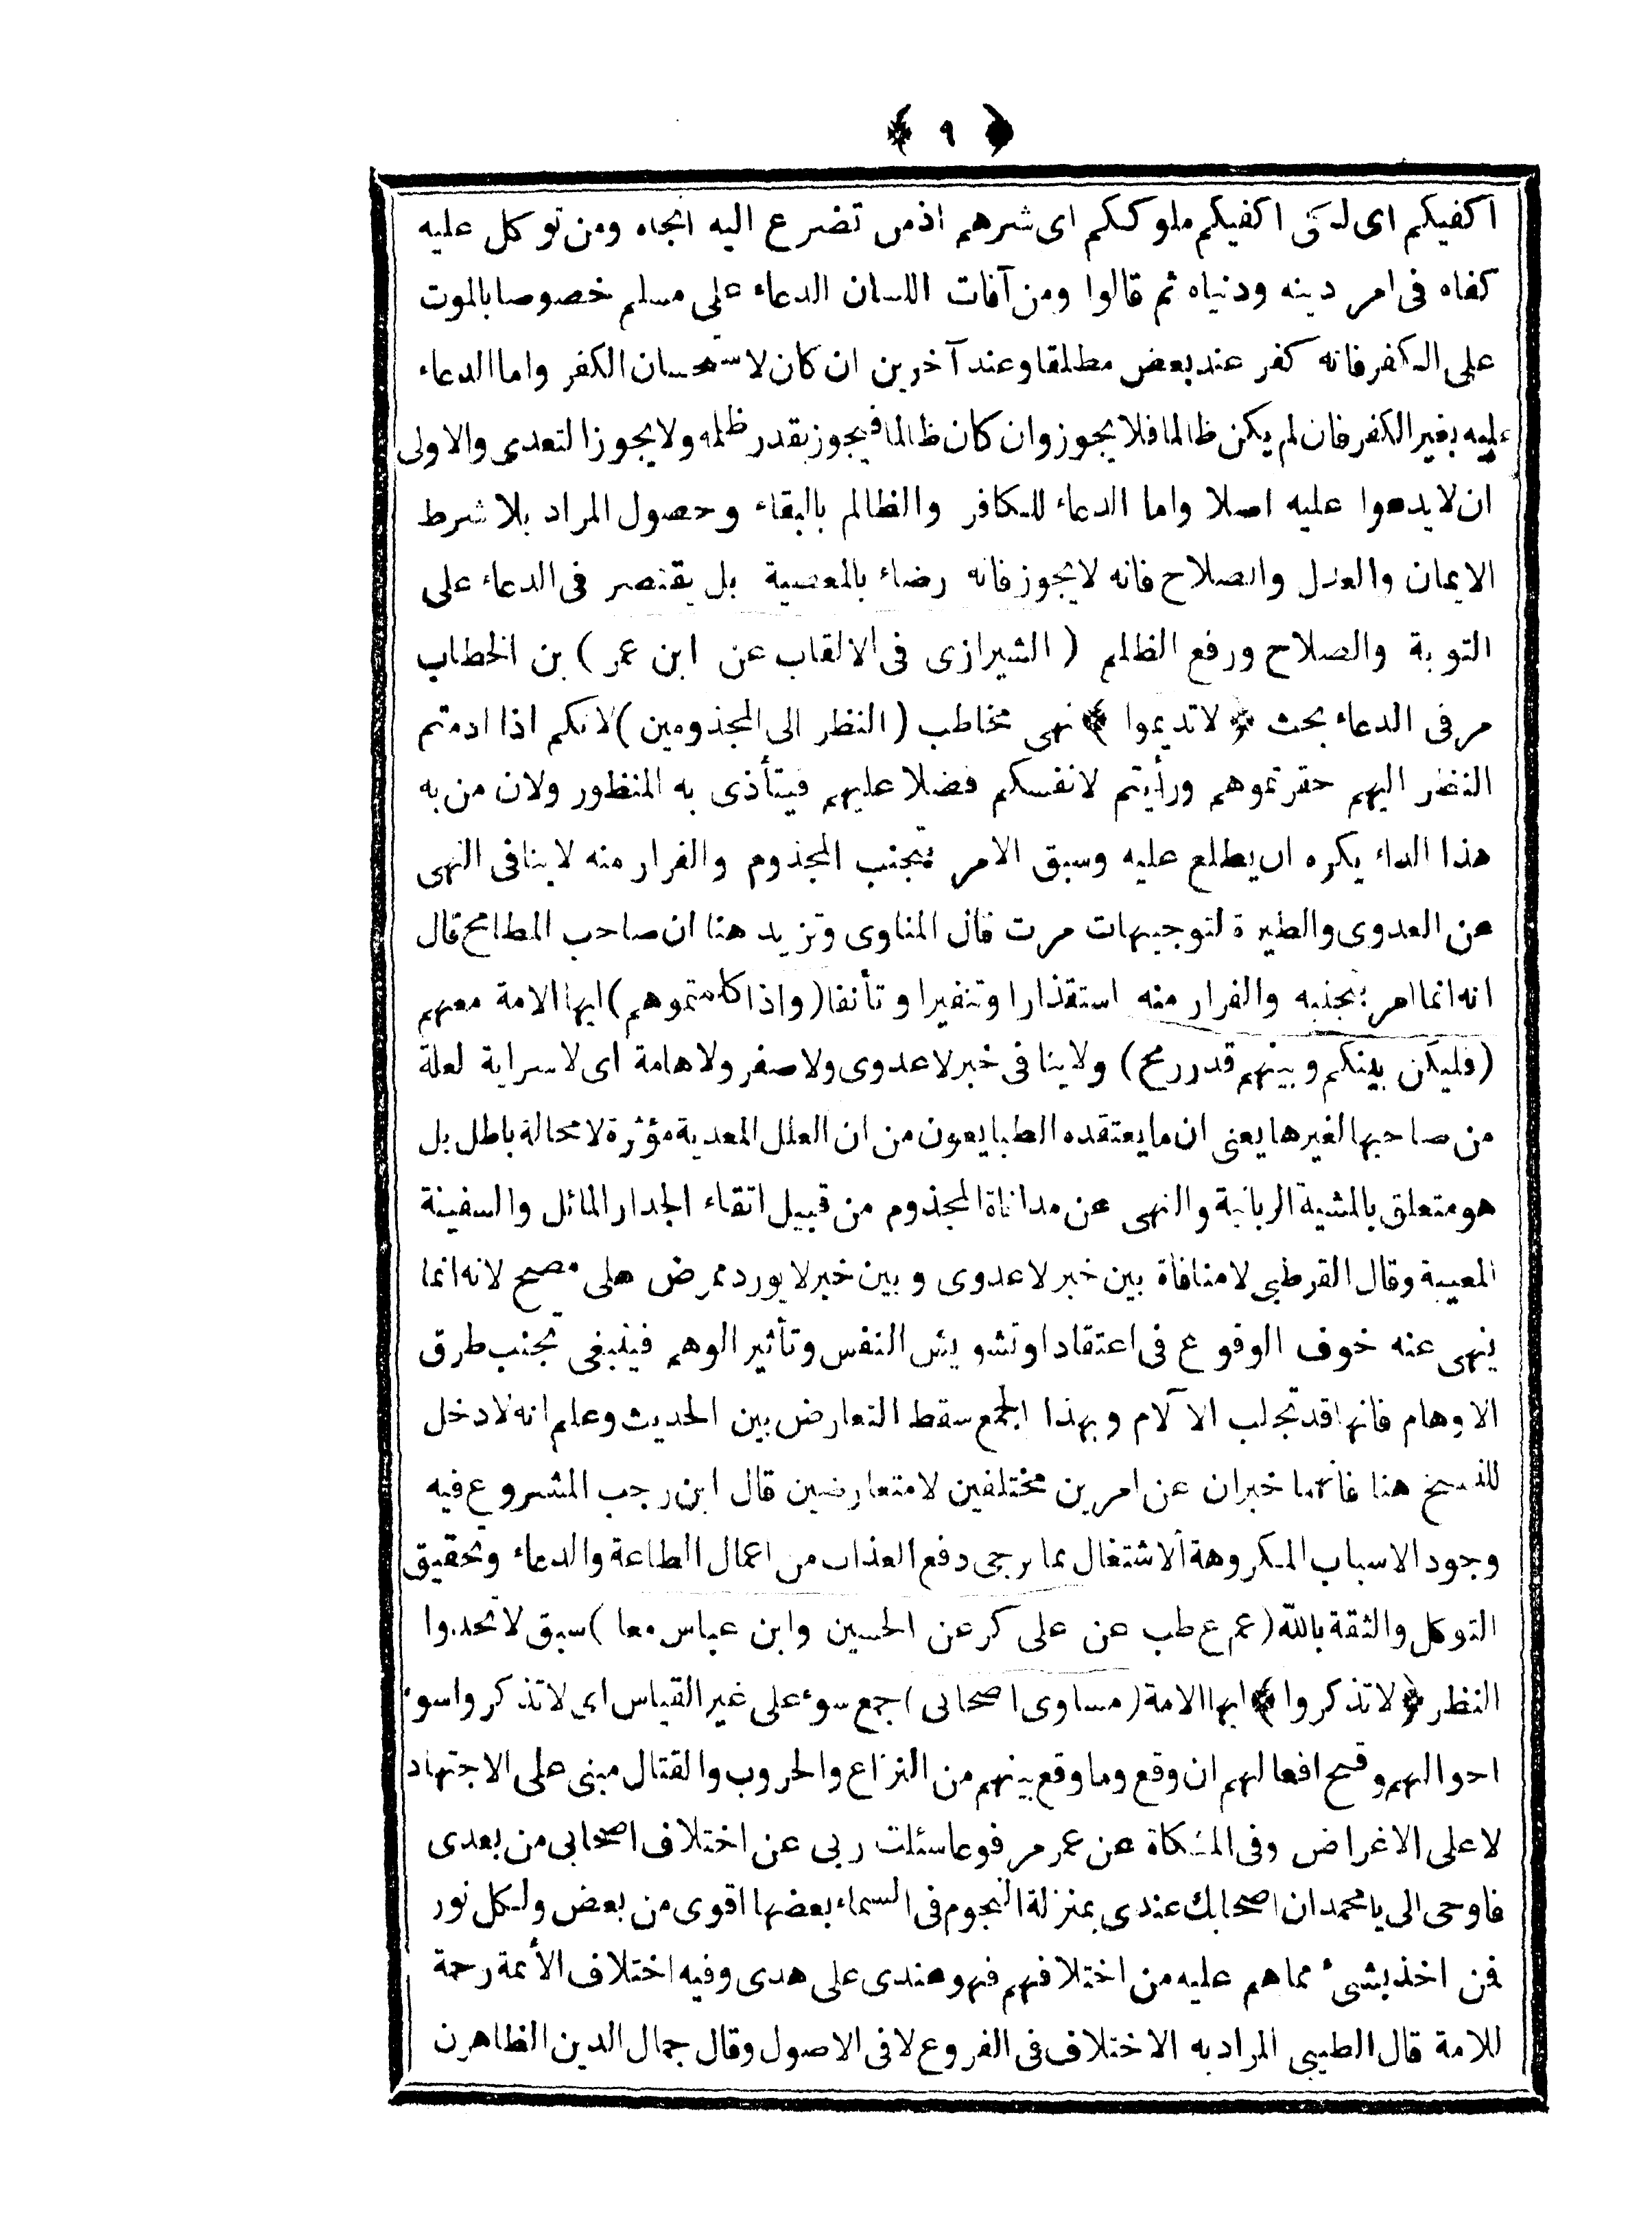 ﴿ ٩ ﴾
اكفيكم اى لكى اكفيكم ملوككم اى شرهم اذ من تضرع اليه انجاه ومن توكل عليه
كفاه فى امر دينه ودنياه ثم قالوا ومن آفات اللسان الدعاء على مسلم خصوصا بالموت
على الكفر فانه كفر عند بعض مطلقا وعند آخرين ان كان لاستحسان الكفر واما الدعاء
عليه بغير الكفر فان لم يكن ظالما فلا يجوز وان كان ظالما فيجوز بقدر ظلمه ولا يجوز التعدى والاولى
ان لا يدعوا عليه اصلا واما الدعاء للكافر والظالم بالبقاء وحصول المراد بلا شرط
الايمان والعدل والصلاح فانه لا يجوز فانه رضاء بالمعصية بل يقتصر فى الدعاء على
التوبة والصلاح ورفع الظلم (الشيرازى فى الالقاب عن ابن عمر) بن الخطاب
مر فى الدعاء بحث ﴿ لا تديموا ﴾ نهى مخاطب (النظر الى المجذومين) لانكم اذا ادمتم
النظر اليهم حقرتموهم ورأيتم لانفسكم فضلا عليهم فيتأذى به المنظور ولان من به
هذا الداء يكره ان يطلع عليه وسبق الامر بتجنب المجذوم والفرار منه لا ينافى النهى
عن العدوى والطيرة لتوجيهات مرت قال المناوى ونزيد هنا ان صاحب المطامح قال
انه انما امر بتجنبه والفرار منه استقذارا وتنفيرا وتأنفا (واذا كلمتموهم) ايها الامة معهم
(فليكن بينكم وبينهم قدر رمح) ولا ينافى خبر لا عدوى ولا صفر ولا هامة اى لا سراية لعلة
من صاحبها لغيرها يعنى ان ما يعتقده الطبايعون من ان العلل المعدية مؤثرة لا محالة باطل بل
هو متعلق بالمشية الربانية والنهى عن مداناة المجذوم من قبيل اتقاء الجدار المائل والسفينة
المعيبة وقال القرطبى لا منافاة بين خبر لا عدوى وبين خبر لا يورد ممرض على مصح لانه انما
ينهى عنه خوف الوقوع فى اعتقاد او تشويش النفس وتأثير الوهم فينبغى تجنب طرق
الاوهام فانها قد تجلب الآلام وبهذا الجمع سقط التعارض بين الحديث وعلم انه لا دخل
للنسخ هنا فانهما خبران عن امرين مختلفين لا متعارضين قال ابن رجب المشروع فيه
وجود الاسباب المكروهة الاشتغال بما يرجى دفع العذاب من اعمال الطاعة والدعاء وتحقيق
التوكل والثقة بالله (عم ع طب عن على كر عن الحسين وابن عباس معا) سبق لا تحدوا
النظر ﴿ لا تذكروا ﴾ ايها الامة (مساوى اصحابى) جمع سوء على غير القياس اى لا تذكروا سوء
احوالهم وقبح افعالهم ان وقع وما وقع بينهم من النزاع والحروب والقتال مبنى على الاجتهاد
لا على الاغراض وفى المشكاة عن عمر مرفوعا سئلت ربى عن اختلاف اصحابى من بعدى
فاوحى الى يا محمد ان اصحابك عندى بمنزلة النجوم فى السماء بعضها اقوى من بعض ولكل نور
فمن اخذ بشىء مما هم عليه من اختلافهم فهو عندى على هدى وفيه اختلاف الأئمة رحمة
للامة قال الطيبى المراد به الاختلاف فى الفروع لا فى الاصول وقال جمال الدين الظاهر ن